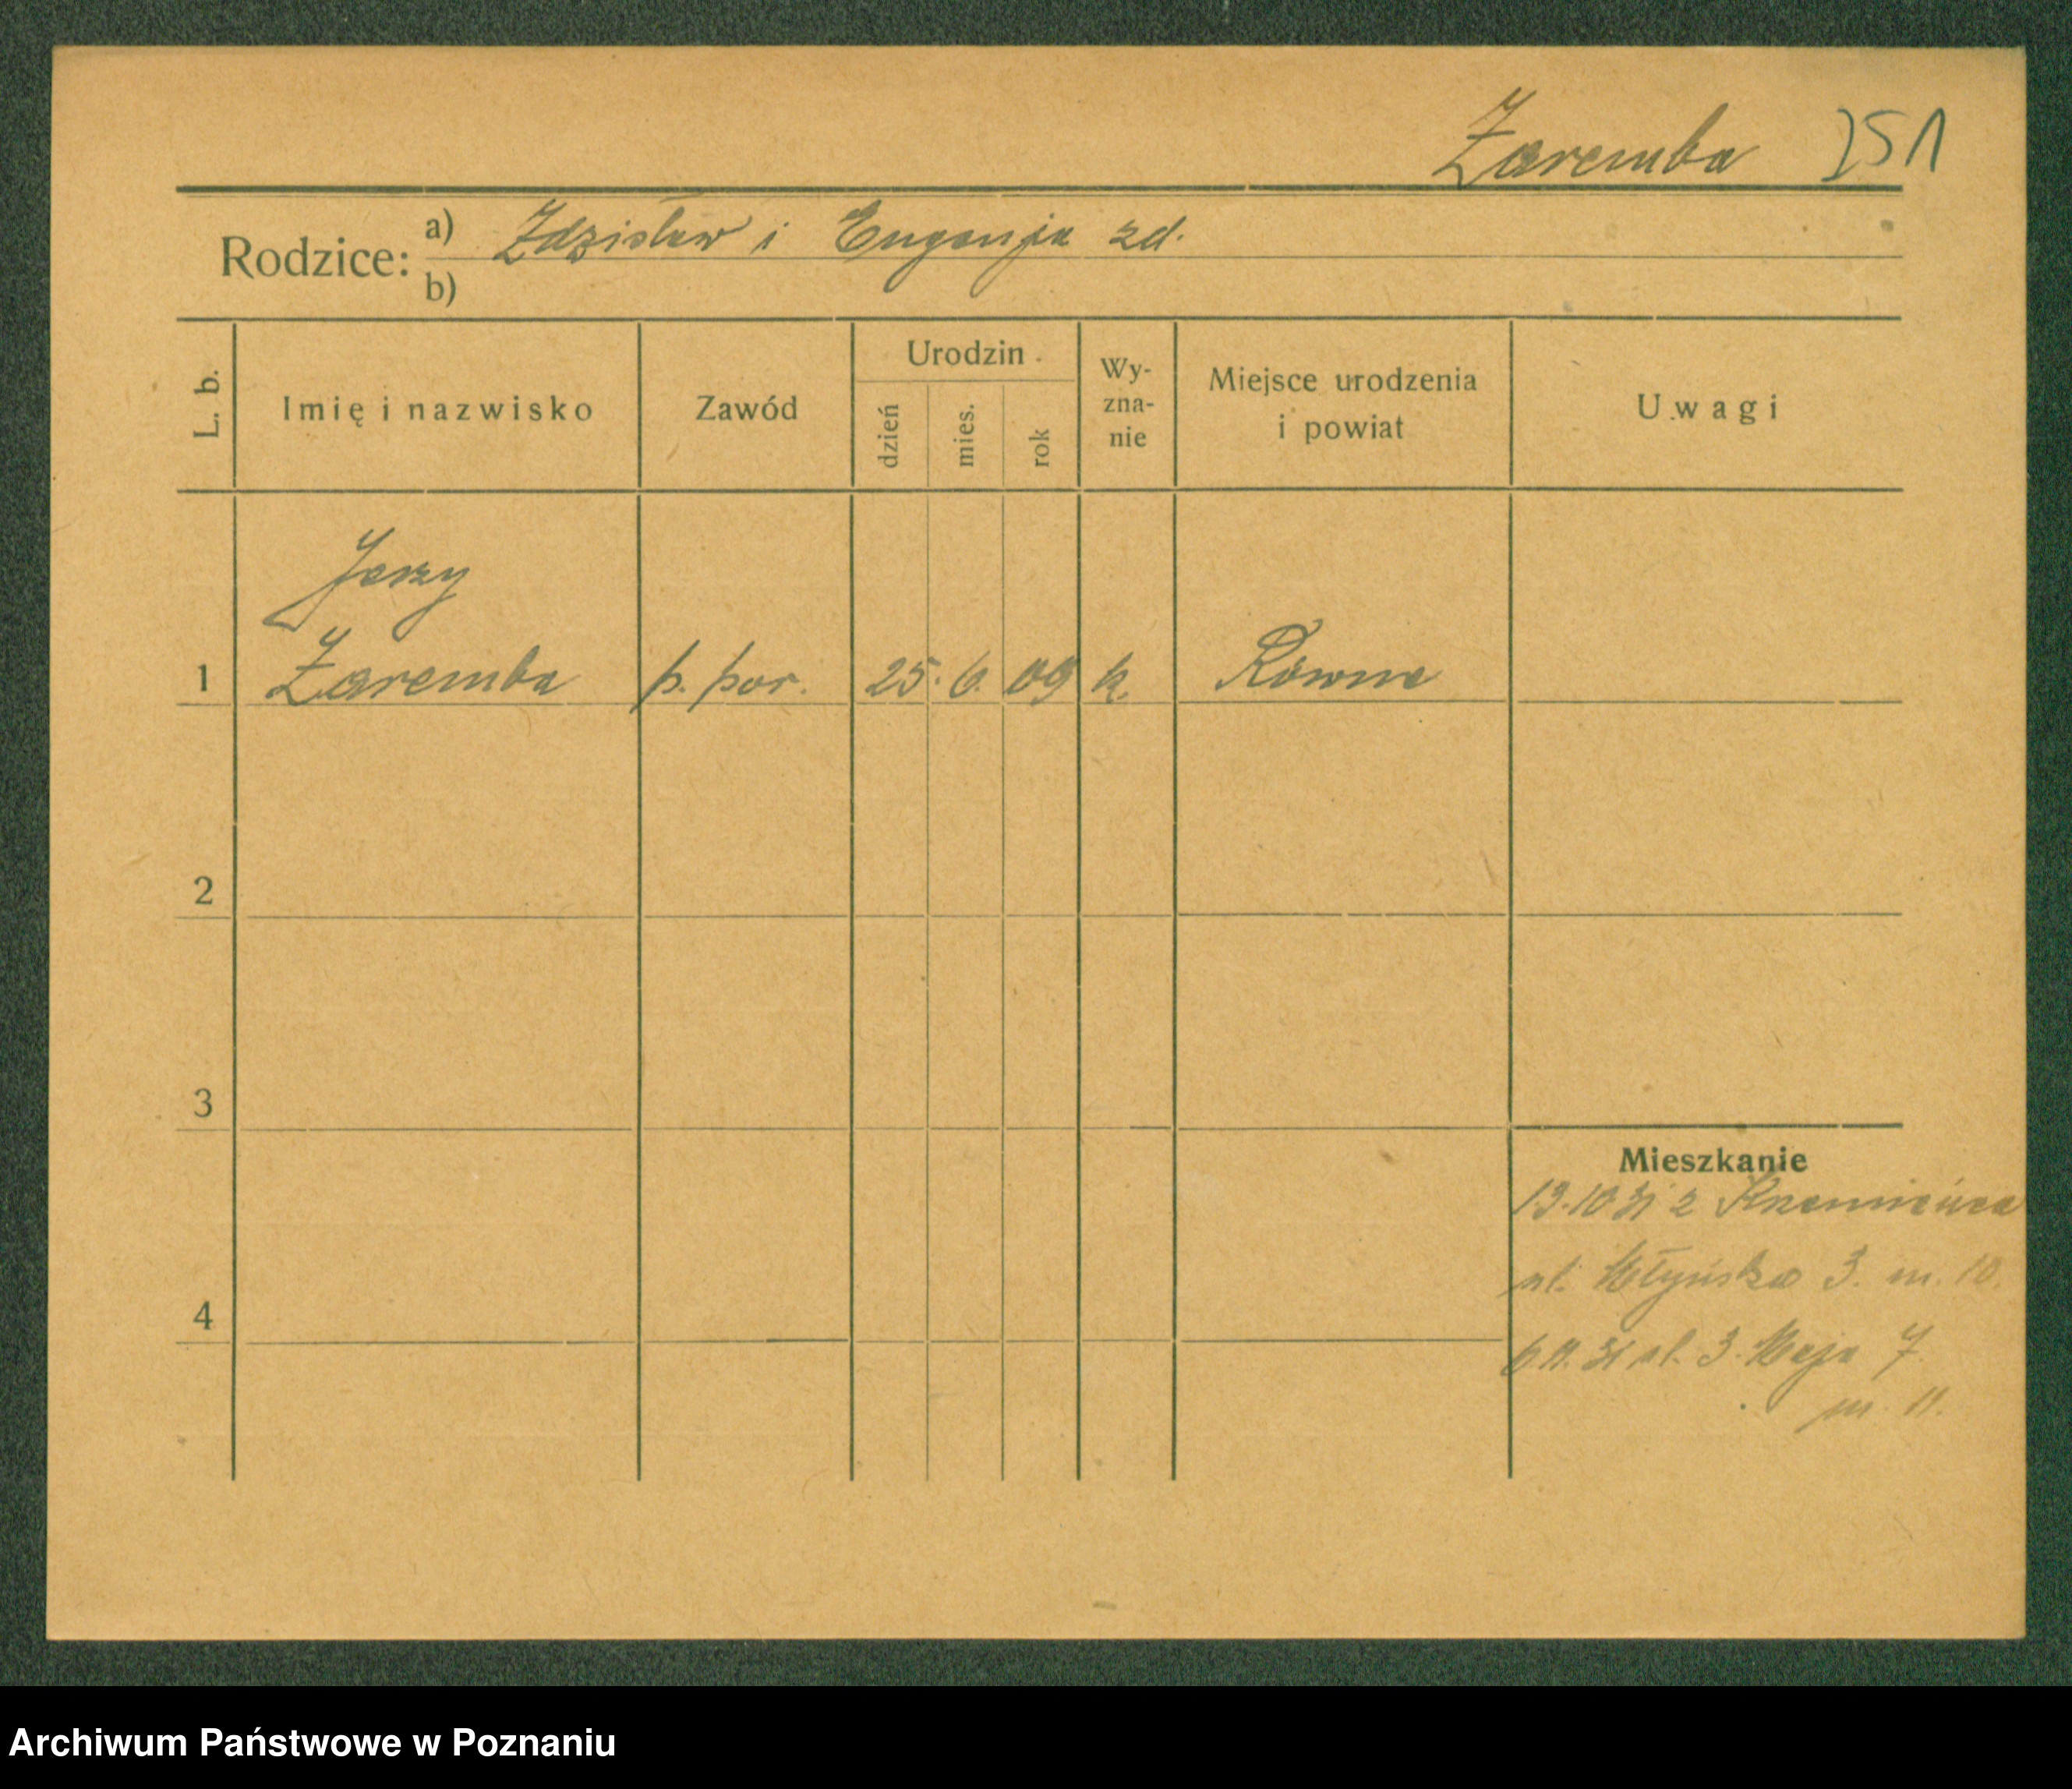 Zaremba 251
Rodzice: a) Zdzisław i Eugenja zd.
b)
L. b. Imię i nazwisko Zawód Urodzin dzień mies. rok Wy-zna-nie Miejsce urodzenia i powiat Uwagi
Jerzy
1 Zaremba p. por. 25. 6. 09 k. Równe
2
3
Mieszkanie
13.10 31 z Krzemieńca
4 ul. Młyńska 3. m. 10.
6.11.31 ul. 3. Maja 7.
m. 11.
Archiwum Państwowe w Poznaniu